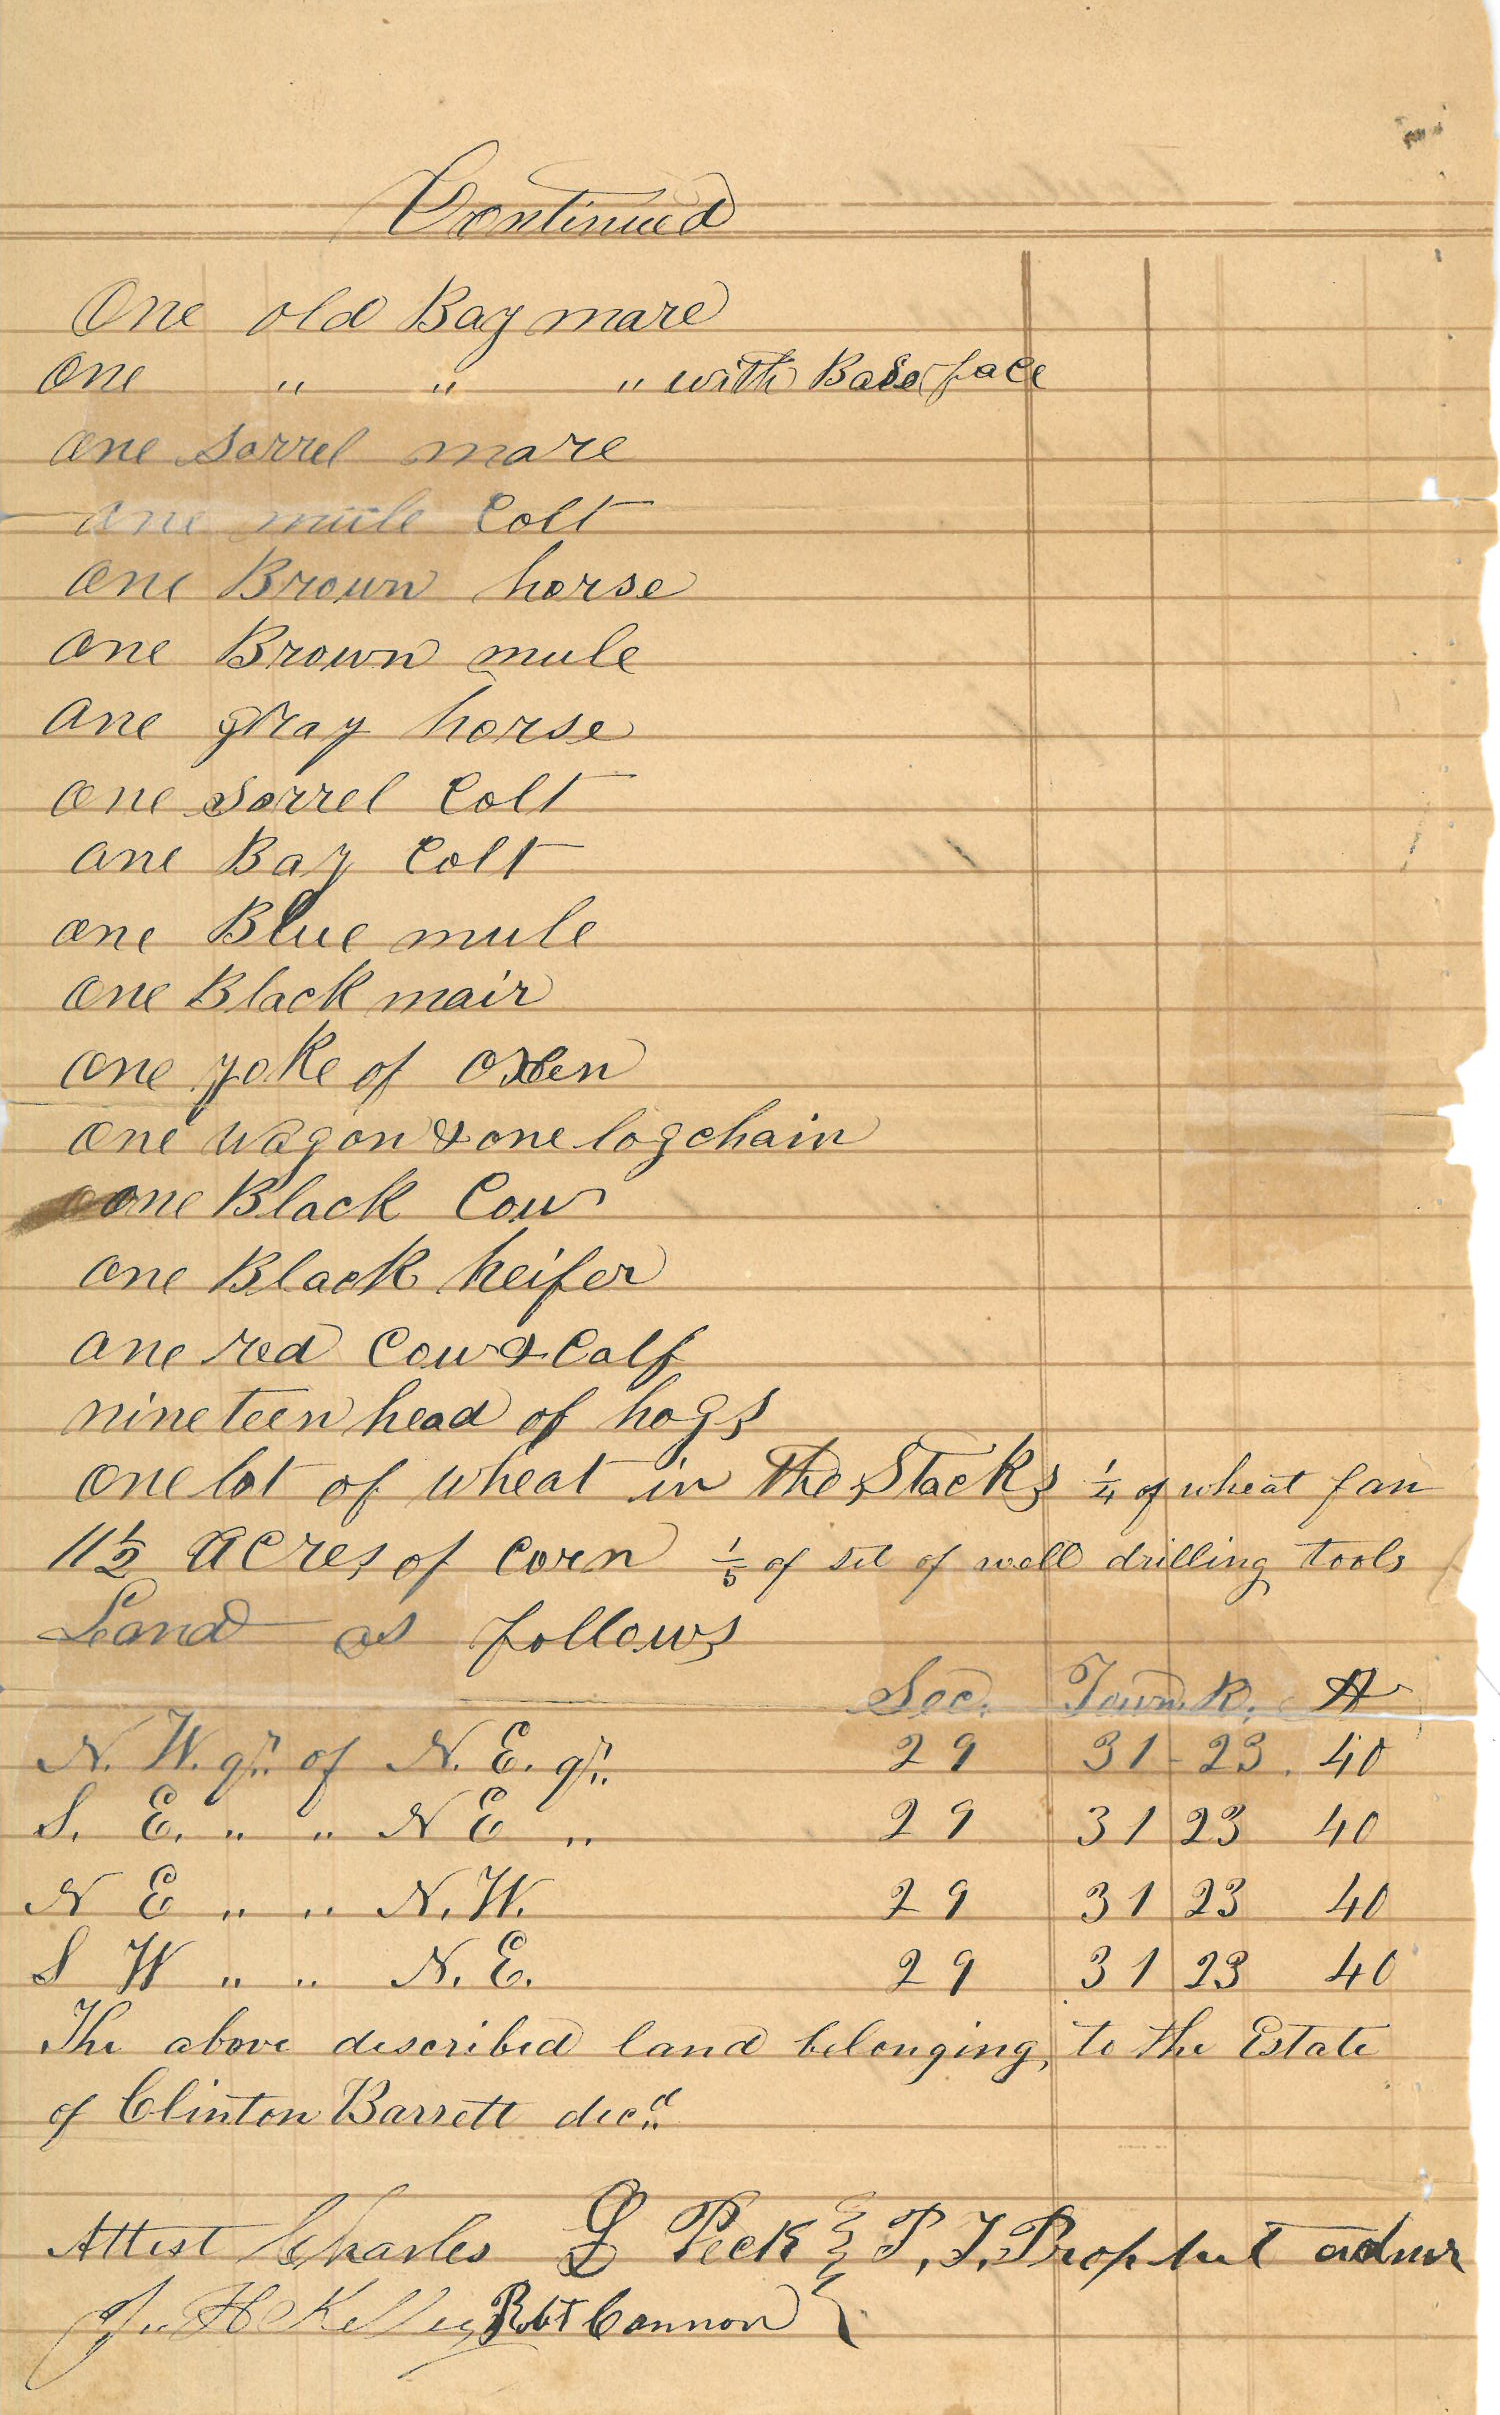 Continued
One old Bay mare
one " " " with Bald face
one Sorrel mare
one muile Colt
one Brown horse
one Brown mule
one gray horse
one Sorrel Colt
one Bay Colt
one Blue mule
one Black mair
one yoke of Oxen
one wagon & one log chain
one Black Cow
one Black heifer
one red Cow & Calf
nineteen head of hogs
one lot of wheat in the Stacks 1/4 of wheat fan
11 1/2 acres of Corn 1/5 of set of well drilling tools
Land as follows
Sec. Town. R. A
N. W. qr. of N. E. qr. 29 31 - 23. 40
S. E. " " N E " 29 31 23 40
N E " " N. W. 29 31 23 40
S W " " N. E. 29 31 23 40
The above described land belonging to the Estate
of Clinton Barrett decd
Attest Charles L Peck } P. T. Prophet admr
H Kelley Robt Cannon